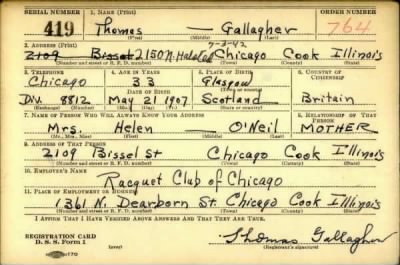 SERIAL NUMBER 1. NAME (Print) ORDER NUMBER
419 Thomas — Gallagher 764
(First) (Middle) (Last)
2. ADDRESS (Print) 7-3-42
2109 Bissel 2150 N. Halsted Chicago Cook Illinois
(Number and street or R. F. D. number) (Town) (County) (State)
3. TELEPHONE 4. AGE IN YEARS 5. PLACE OF BIRTH 6. COUNTRY OF CITIZENSHIP
Chicago 33 Glasgow
DATE OF BIRTH (Town or county)
Div. 8812 May 21 1907 Scotland Britain
(Exchange) (Number) (Mo.) (Day) (Yr.) (State or country)
7. NAME OF PERSON WHO WILL ALWAYS KNOW YOUR ADDRESS 8. RELATIONSHIP OF THAT PERSON
Mrs. Helen — O'Neil MOTHER
(Mr., Mrs., Miss) (First) (Middle) (Last)
9. ADDRESS OF THAT PERSON
2109 Bissel St Chicago Cook Illinois
(Number and street or R. F. D. number) (Town) (County) (State)
10. EMPLOYER'S NAME
Racquet Club of Chicago
11. PLACE OF EMPLOYMENT OR BUSINESS
1361 N. Dearborn St. Chicago Cook Illinois
(Number and street or R. F. D. number) (Town) (County) (State)
I AFFIRM THAT I HAVE VERIFIED ABOVE ANSWERS AND THAT THEY ARE TRUE.
REGISTRATION CARD
D. S. S. Form 1 Thomas Gallagher
(Registrant's signature)